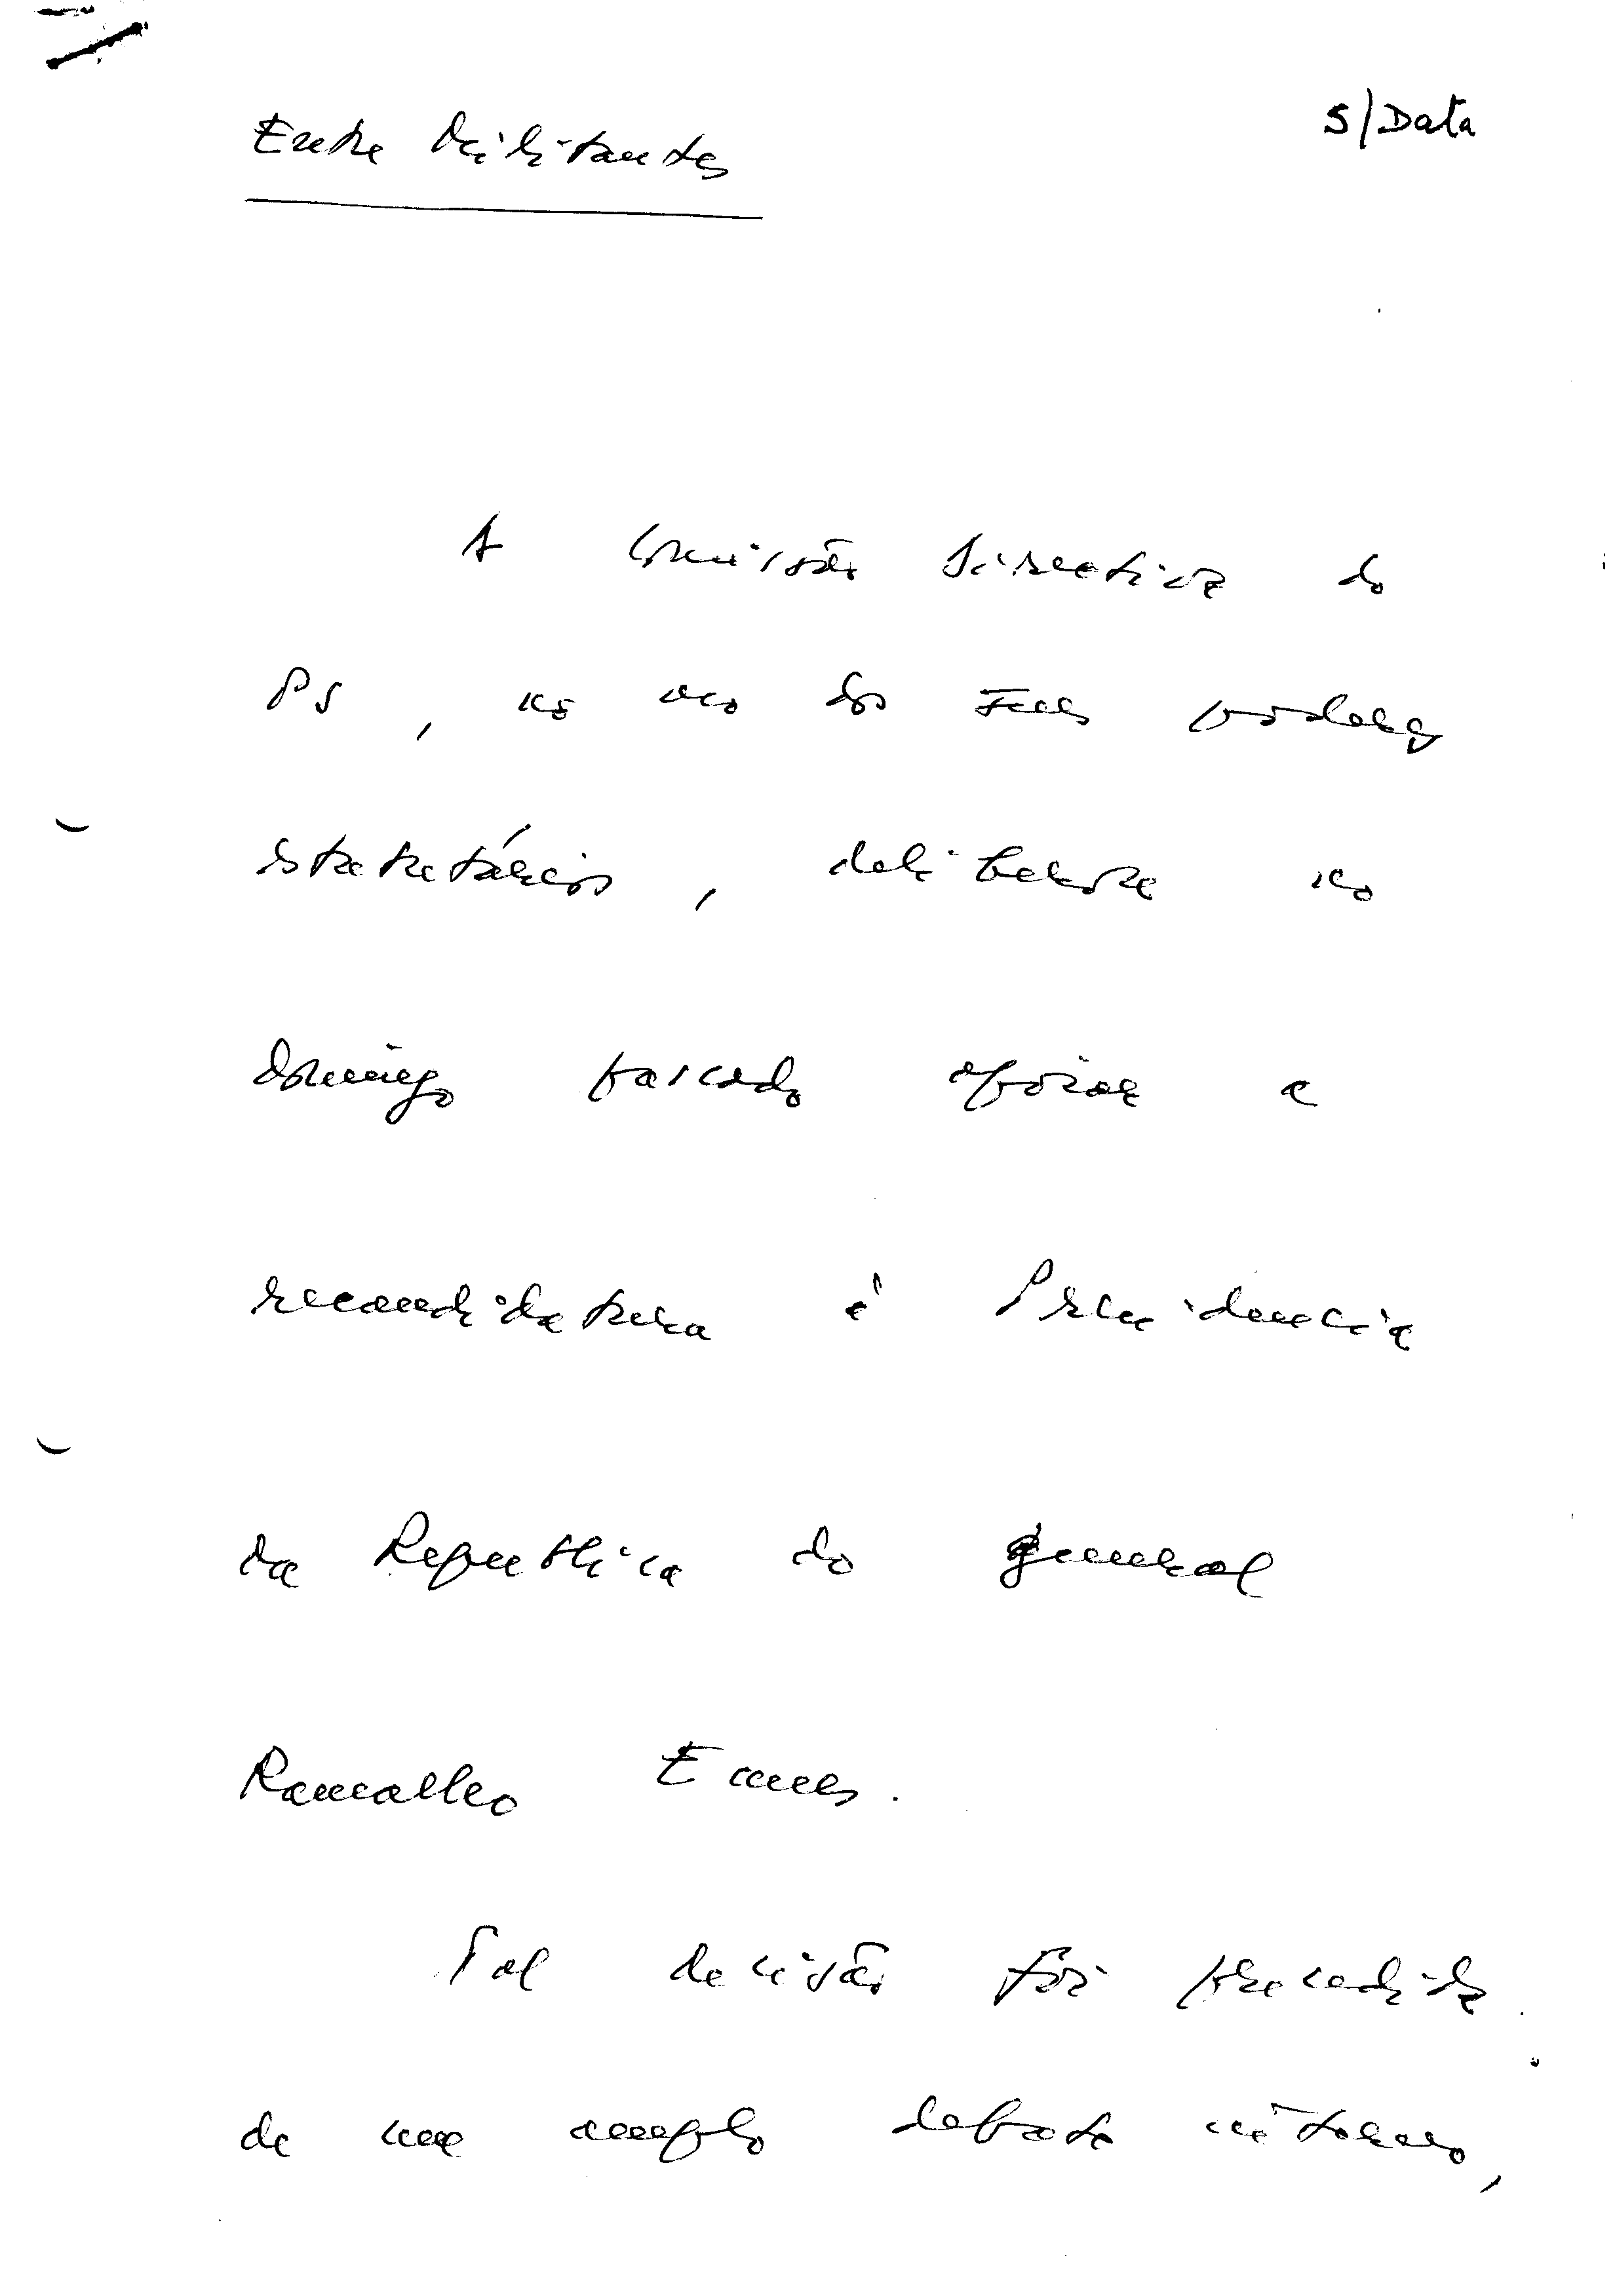 S/Data
Entre Militantes
A Comissão Directiva do
PS, no uso dos seus poderes
estatutários, deliberou no
domingo passado apoiar a
recandidatura à Presidencia
da Republica do general
Ramalho Eanes.
Tal decisão foi precedida
de um amplo debate interno,